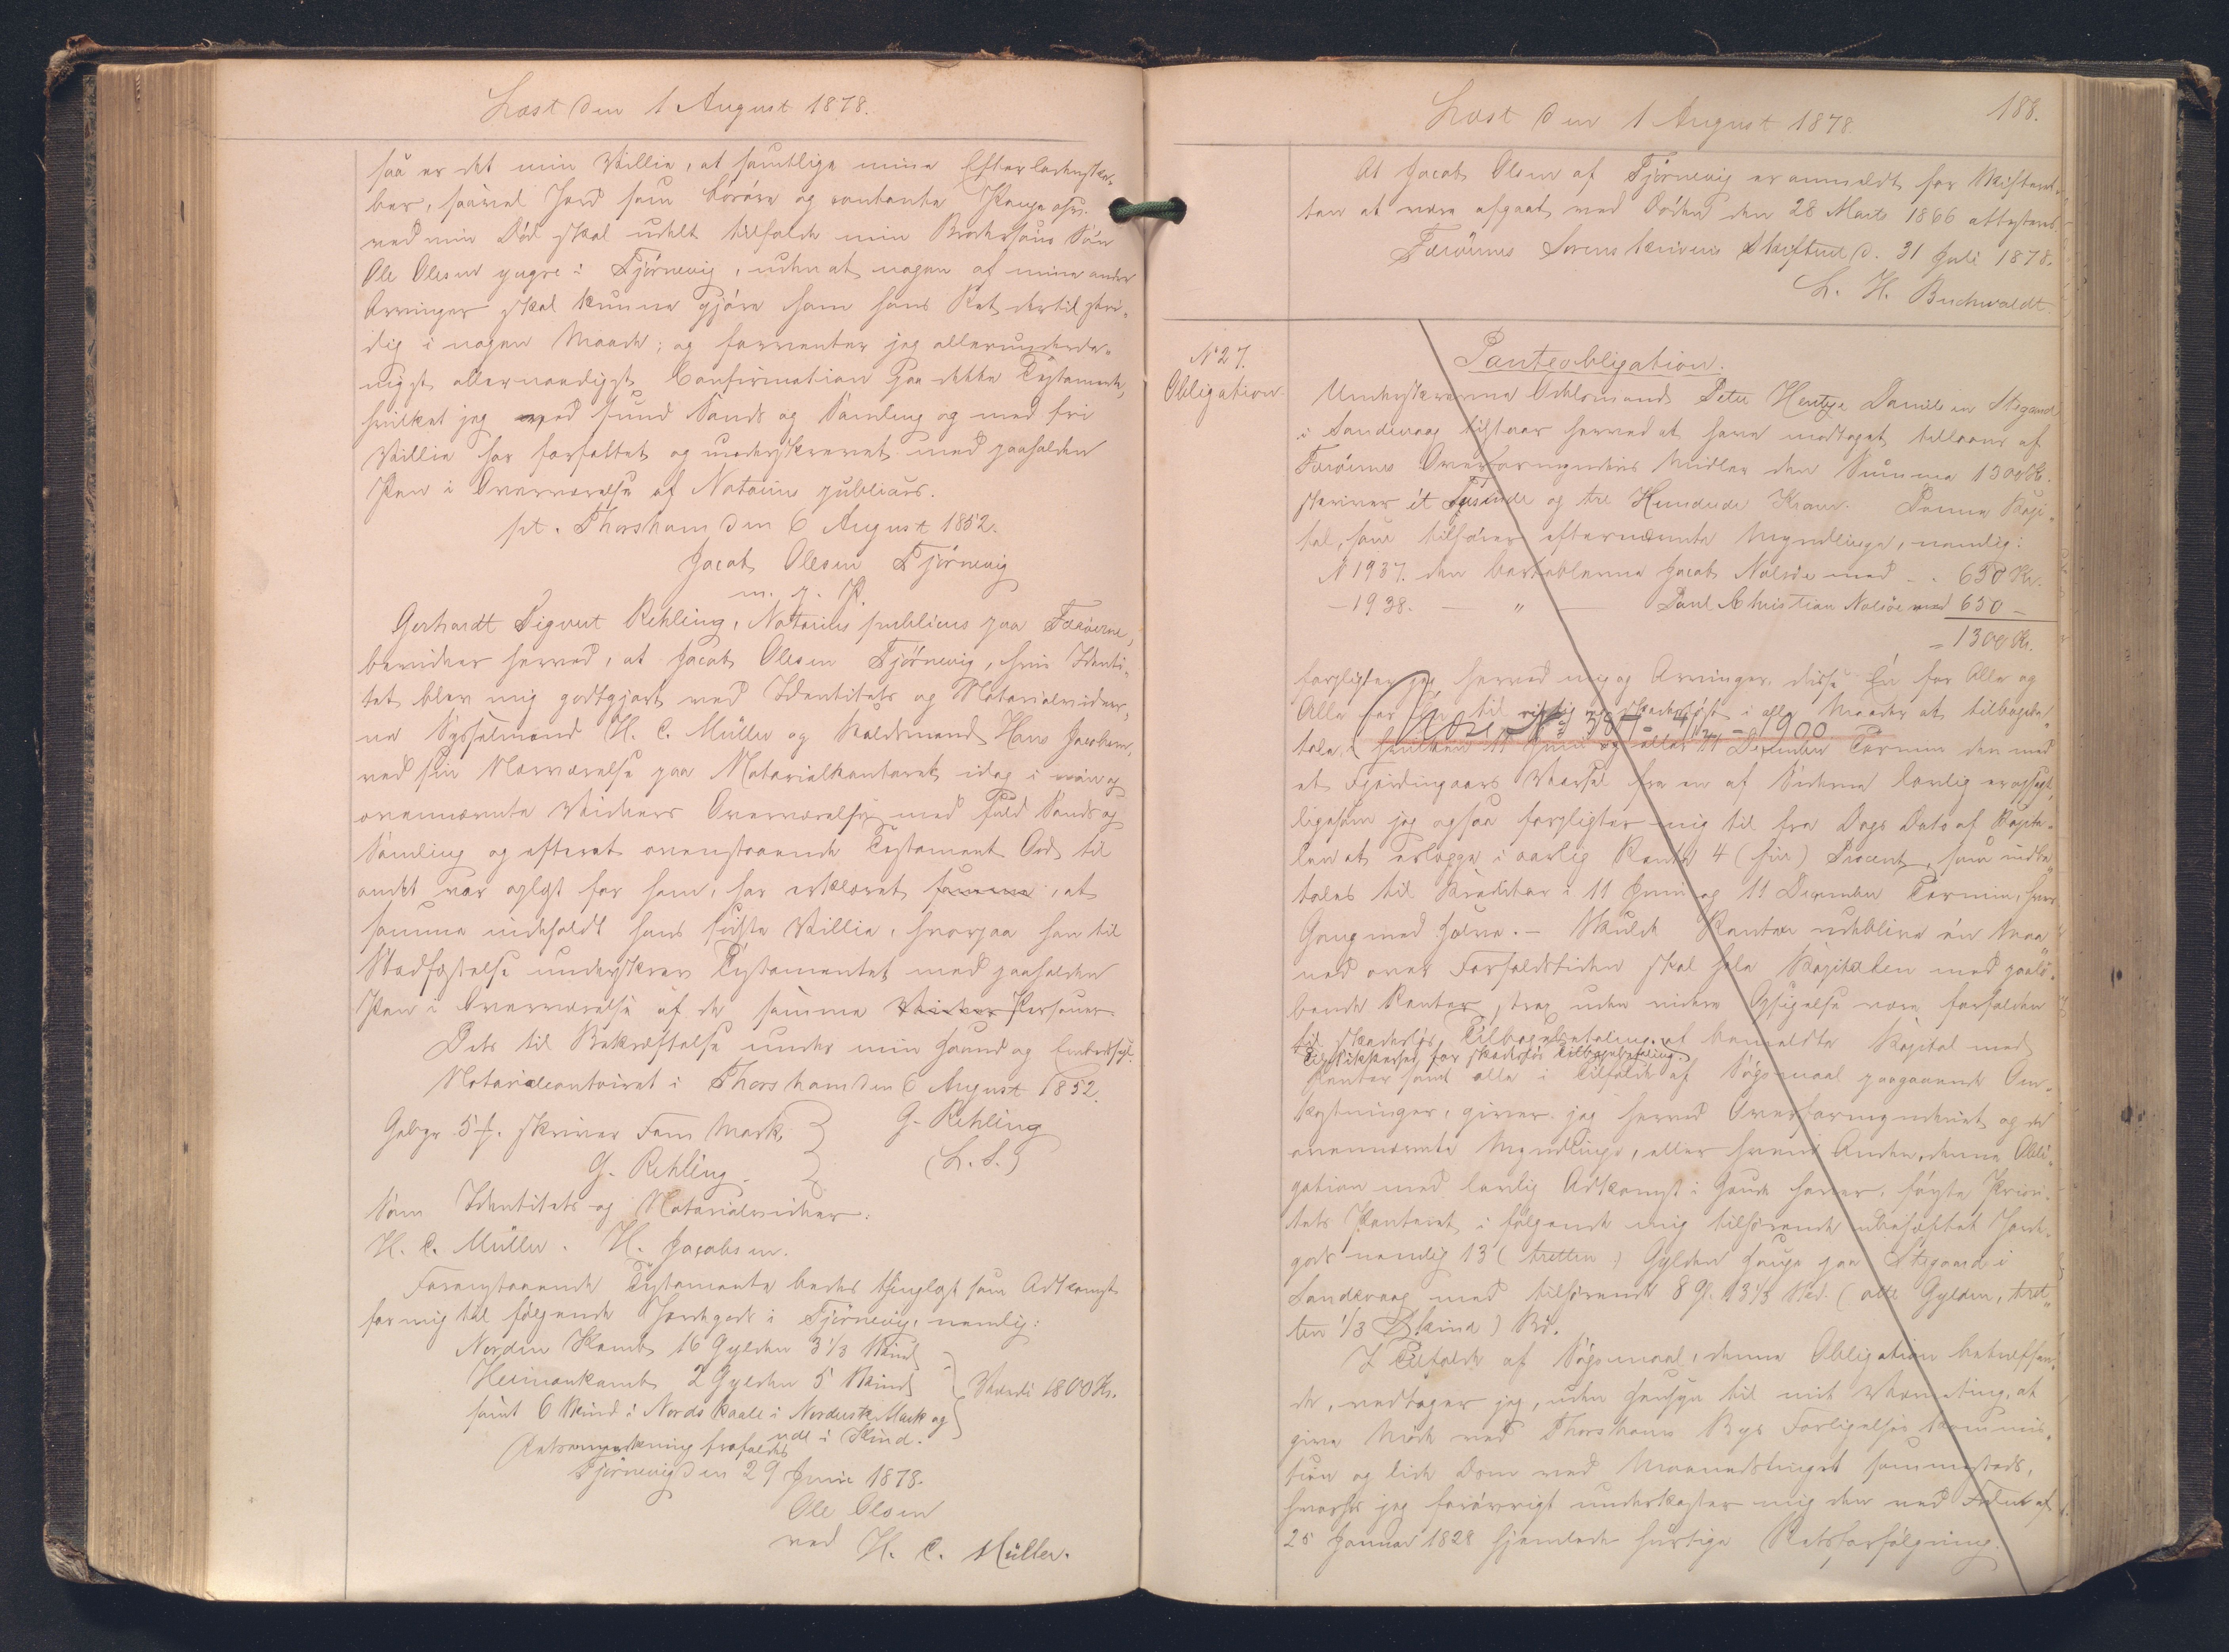 Læst den 1 August 1878.
saa er det min Villie, at samtlige mine Efterladenska-
ber, saavel Jord som Løsøre og contante Penge osv.
ved min Død skal udelt tilfalde min Brodersøns Søn
Ole Olesen yngre i Tjørnevig, uden at nogen af mine andre
Arvinger skal kunne gjøre ham hans Ret dertil stri-
dig i nogen Maade; og forventer jeg allerunderda-
nigst allernaadigst Confirmation paa dette Testament,
hvilket jeg med sund Sands og Samling og med fri
Villie har forfattet og underskrevet med paaholden
Pen i Overværelse af Notarius publicus.
pt. Thorshavn den 6 August 1852.
Jacob Olesen Tjørnevig
m. p. P.
Gerhardt Sigvert Rehling, Notarius publicus paa Færøerne,
bevidner herved, at Jacob Olesen Tjørnevig, hvis Identi-
tet blev mig godtgjort ved Identitets og Notarialvidner-
ne Sysselmand H. C. Müller og Huldsmand Hans Jacobsen,
ved sin Nærværelse paa Notarialkontoret idag i min og
ovennævnte Vidners Overværelse med fuld Sands og
Samling og efterat ovenstaaende Testament Ord til
andet var oplæst for ham, har erklæret samme, at
samme indeholdt hans sidste Villie, hvorpaa han til
Stadfæstelse underskrev Testamentet med paaholden
Pen i Overværelse af de samme Vidner Personer.
Dets til Bekræftelse under min Haand og Embedssegl.
Notarialcontoiret i Thorshavn den 6 August 1852.
Gebyr 5 f. skriver Fem Mark,
G. Rehling
G. Rehling.
(L. S.)
Som Identitets og Notarialvidner:
H. C. Müller. H. Jacobsen.
Foranstaaende Testamente bedes thinglæst som Adkomst
for mig til følgende Jordegods i Tjørnevig, nemlig:
Nordin Kamb 16 Gylden 3 1/3 Skind
Heimankamb 2 Gylden 5 Skind
Værdi 1800 Kr.
samt 6 Skind i Nordskaale i Norderste Mark og
ude i Hind.
Retsanmærkning frafaldes
Tjørnevig den 29 Juni 1878.
Ole Olsen
ved H. C. Müller.
Læst den 1 August 1878.
188.
At Jacob Olesen af Tjørnevig er anmeldt for Skifteret-
ten at være afgaaet ved Døden den 28 Marts 1866 attesteres.
Færøernes Sorenskriveris Skifteret d. 31 Juli 1878.
L. H. Buchwaldt.
N 27.
Obligation
Panteobligation.
Underskrevne Odelsmand Peter Hentze Danielsen Stegaard
i Sandevaag tilstaar herved at have modtaget tillaans af
Færøernes Overformynderis Midler den Summa 1300 Kr.
skriver ét Tusinde og tre Hundrede Kroner. Denne Kapi-
tal, som tilhører efternævnte Myndlinge, nemlig:
N 1937. den Jacob Nolsøe med - . 650 Kr.
- 1938. — " — Poul Christian Nolsøe med 650 -
= 1300 Kr.
forpligter jeg herved mig og Arvinger, disse Én for Alle og
Alle for Én til rigtig og skadesløst i alle Maader at tilbagebe-
Aflæst N 387 - 4/11 - 1900
tale, i hvilken 11 Juni og eller 11 December Termin den med
et Fjerdingaars Varsel fra en af Siderne lovlig er opsagt,
ligesom jeg ogsaa forpligter mig til fra Dags Dato af Kapita-
len at erlægge i aarlig Rente 4 (fire) Procent, som indbe-
tales til Kreditor i 11 Juni og 11 December Termin, hver
Gang med Halvdelen. — Skulde Renten udeblive én Maa-
ned over Forfaldstiden skal hele Kapitalen med paalø-
bende Renter, strax uden videre Opsigelse være forfalden
til skadesløs Tilbagebetaling. at bemeldte Kapital med
Til Sikkerhed for skadesløs Tilbagebetaling
Renter samt alle i Tilfælde af Søgsmaal paagaaende Om-
kostninger, giver jeg herved Overformynderiet og de
ovennævnte Myndlinge, eller hvem Anden, denne Obli-
gation med lovlig Adkomst i Hænde haver, første Priori-
tets Panteret i følgende mig tilhørende ubehæftet Jorde-
gods nemlig 13 (tretten) Gylden Hauge paa Stegaard i
Sandevaag med tilhørende 8 Gl. 13 1/3 Skd. (otte Gylden, tret-
ten 1/3 Skind) Bø.
I Tilfælde af Søgsmaal, denne Obligation betræffen-
de, vedtager jeg, uden Hensyn til mit Værneting, at
give Møde ved Thorshavns Byes Forligelses Kommis-
sion og lide Dom ved Maanedstinget sammesteds,
hvorhos jeg forøvrigt underkaster mig den ved Frdn. af
25 Januar 1828 hjemlede hurtige Retsforfølgning.